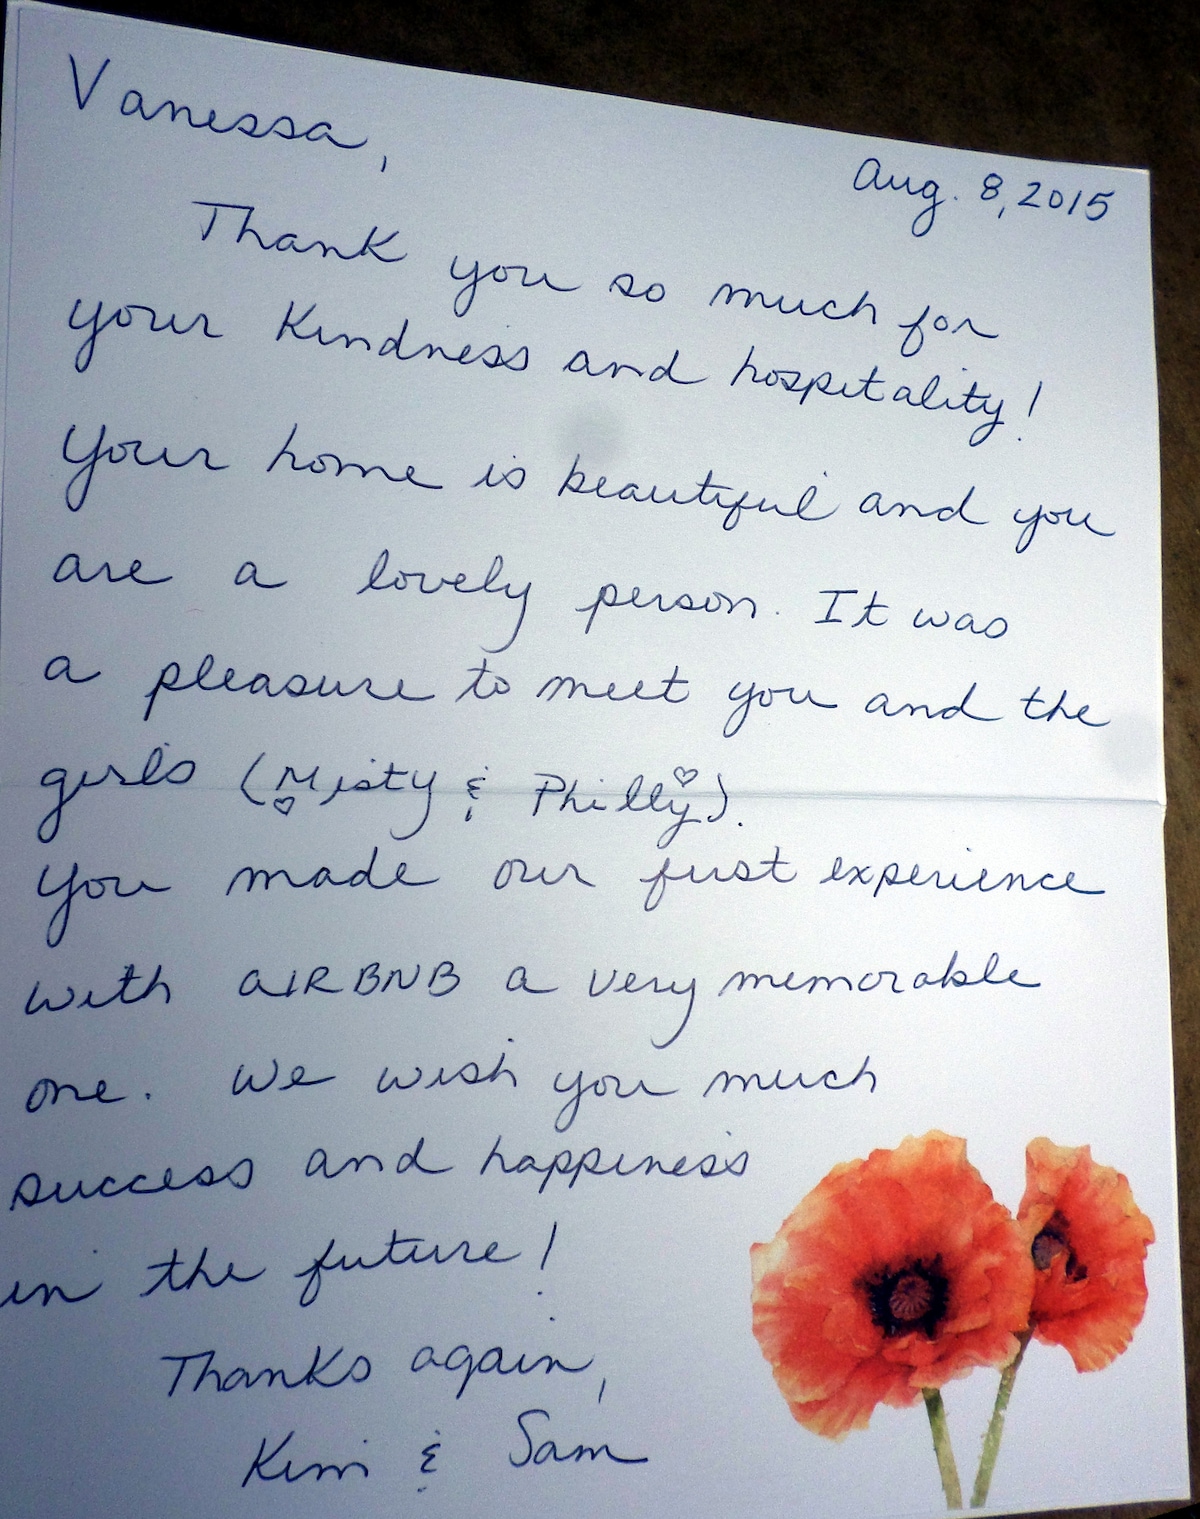 Vanessa,
Aug. 8, 2015
Thank you so much for
your kindness and hospitality!
Your home is beautiful and you
are a lovely person. It was
a pleasure to meet you and the
girls (Misty & Philly).
You made our first experience
with AIRBNB a very memorable
one. We wish you much
success and happiness
in the future!
Thanks again,
Kim & Sam